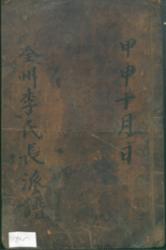 甲申十月日
全州李氏長派譜